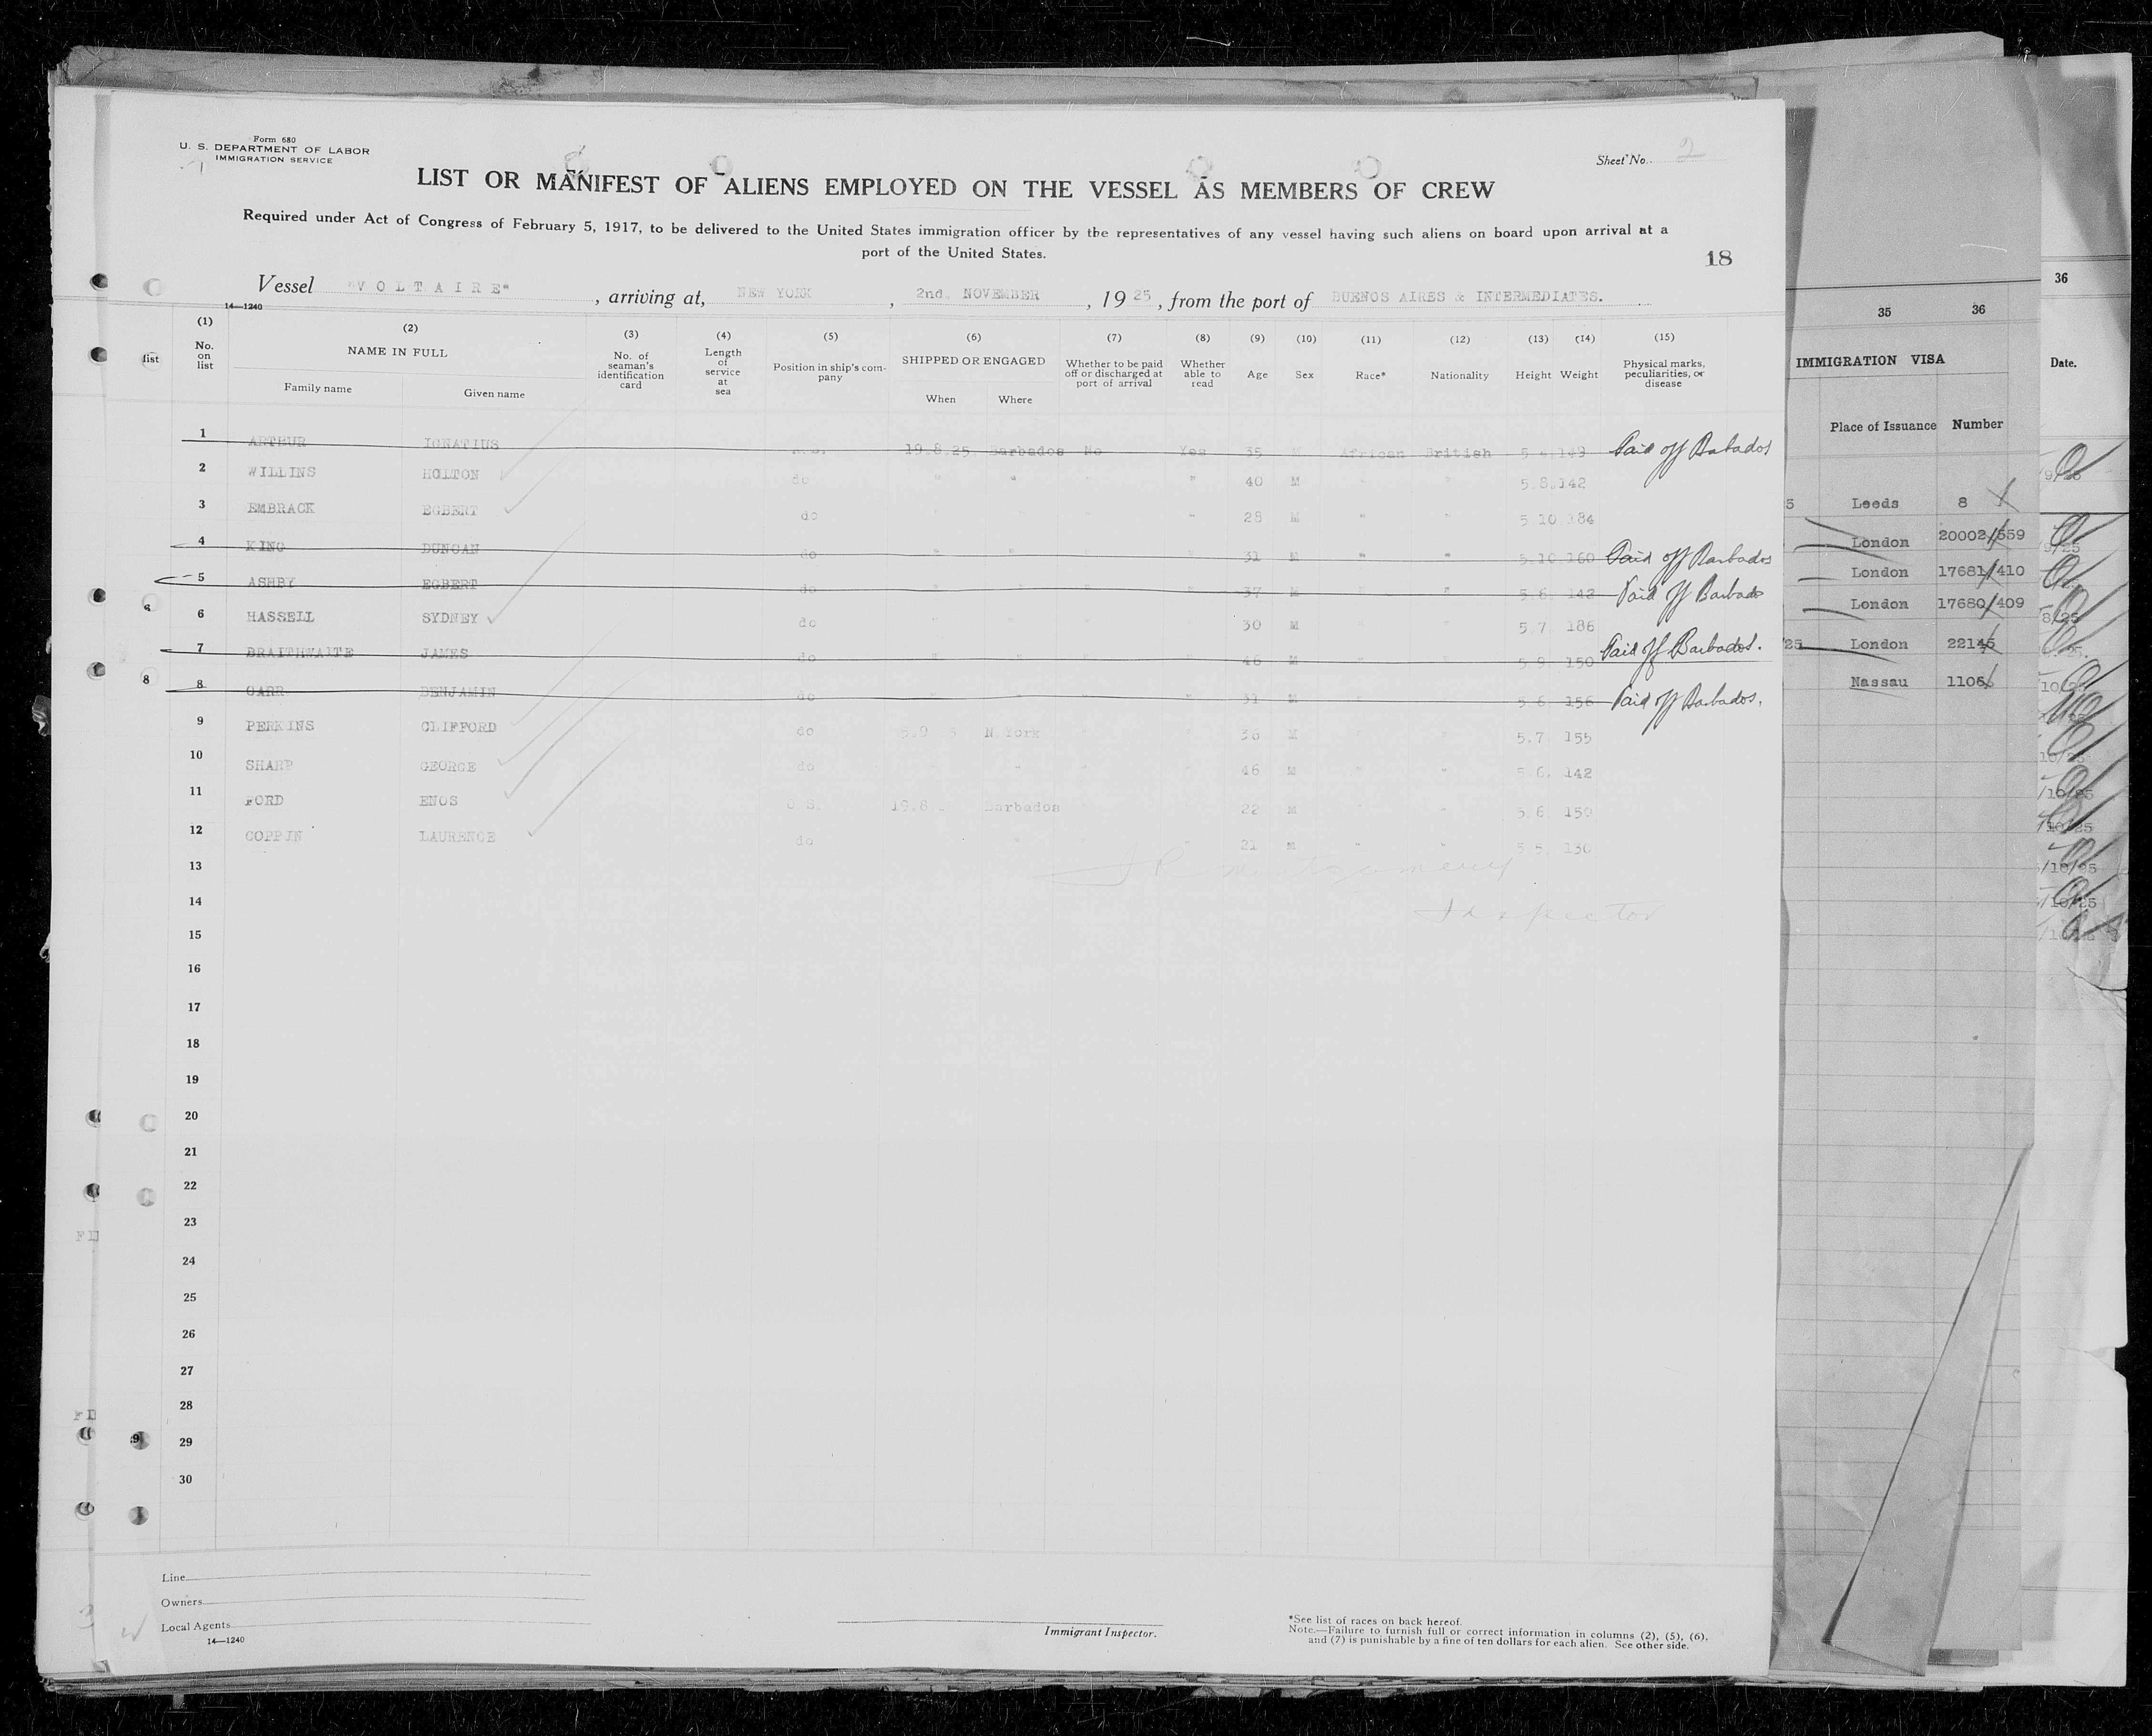 Form 680
U. S. DEPARTMENT OF LABOR
IMMIGRATION SERVICE
Sheet No. 2
LIST OR MANIFEST OF ALIENS EMPLOYED ON THE VESSEL AS MEMBERS OF CREW
Required under Act of Congress of February 5, 1917, to be delivered to the United States immigration officer by the representatives of any vessel having such aliens on board upon arrival at a
port of the United States.
18
Vessel "VOLTAIRE" , arriving at, NEW YORK , 2nd. NOVEMBER , 1925 , from the port of BUENOS AIRES & INTERMEDIATES.
14—1240
(1) (2) (3) (4) (5) (6) (7) (8) (9) (10) (11) (12) (13) (14) (15)
No. on list NAME IN FULL Family name Given name No. of seaman's identification card Length of service at sea Position in ship's company SHIPPED OR ENGAGED When Where Whether to be paid off or discharged at port of arrival Whether able to read Age Sex Race* Nationality Height Weight Physical marks, peculiarities, or disease
1 ARTHUR IGNATIUS A.B. 19.8.25 Barbados No Yes 35 M African British 149 Paid off Babados
2 WILLINS HOLTON do " " " " 40 M " " 5.8. 142
3 EMBRACK EGBERT do " " " " 28 M " " 5 10 184
4 KING DUNCAN do " " " " 31 M " " 5.10 160 Paid off Barbados
5 ASHBY EGBERT do " " " " 37 M " " 5 6 142 Paid off Barbado
6 HASSELL SYDNEY do " " " " 30 M " " 5 7 186
7 BRAITHWAITE JAMES do " " " " 46 M " " 5 9 150 Paid off Barbados.
8 CARR BENJAMIN do " " " " 31 M " " 5 6 156 Paid off Barbados.
9 PERKINS CLIFFORD do N.York " " 36 M " " 5.7. 155
10 SHARP GEORGE do " " " " 46 M " " 5 6. 142
11 FORD ENOS O.S. 19.8 Barbados 22 M " 5 6. 150
12 COPPIN LAURENCE do " 21 M " " 5 5. 130
13
J R Montgomery
14
Inspector
15
16
17
18
19
20
21
22
23
24
25
26
27
28
29
30
Line
Owners
Local Agents
14—1240
Immigrant Inspector.
*See list of races on back hereof.
Note.—Failure to furnish full or correct information in columns (2), (5), (6),
and (7) is punishable by a fine of ten dollars for each alien. See other side.
list
8
35 36
IMMIGRATION VISA
Place of Issuance Number
5 Leeds 8
London 20002/559
London 17681/410
London 17680/409
25 London 22145
Nassau
36
Date.